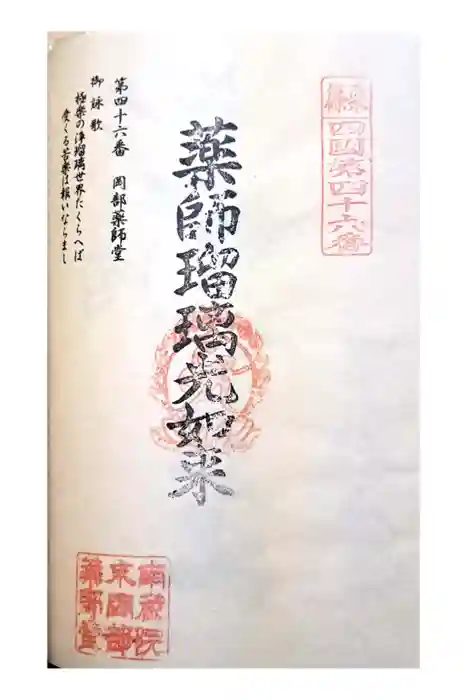 四国第四十六番
薬師瑠璃光如来
第四十六番 岡部薬師堂
御詠歌
極楽の浄瑠璃世界たくらへば
受くる苦楽は報いならまし
薬師堂